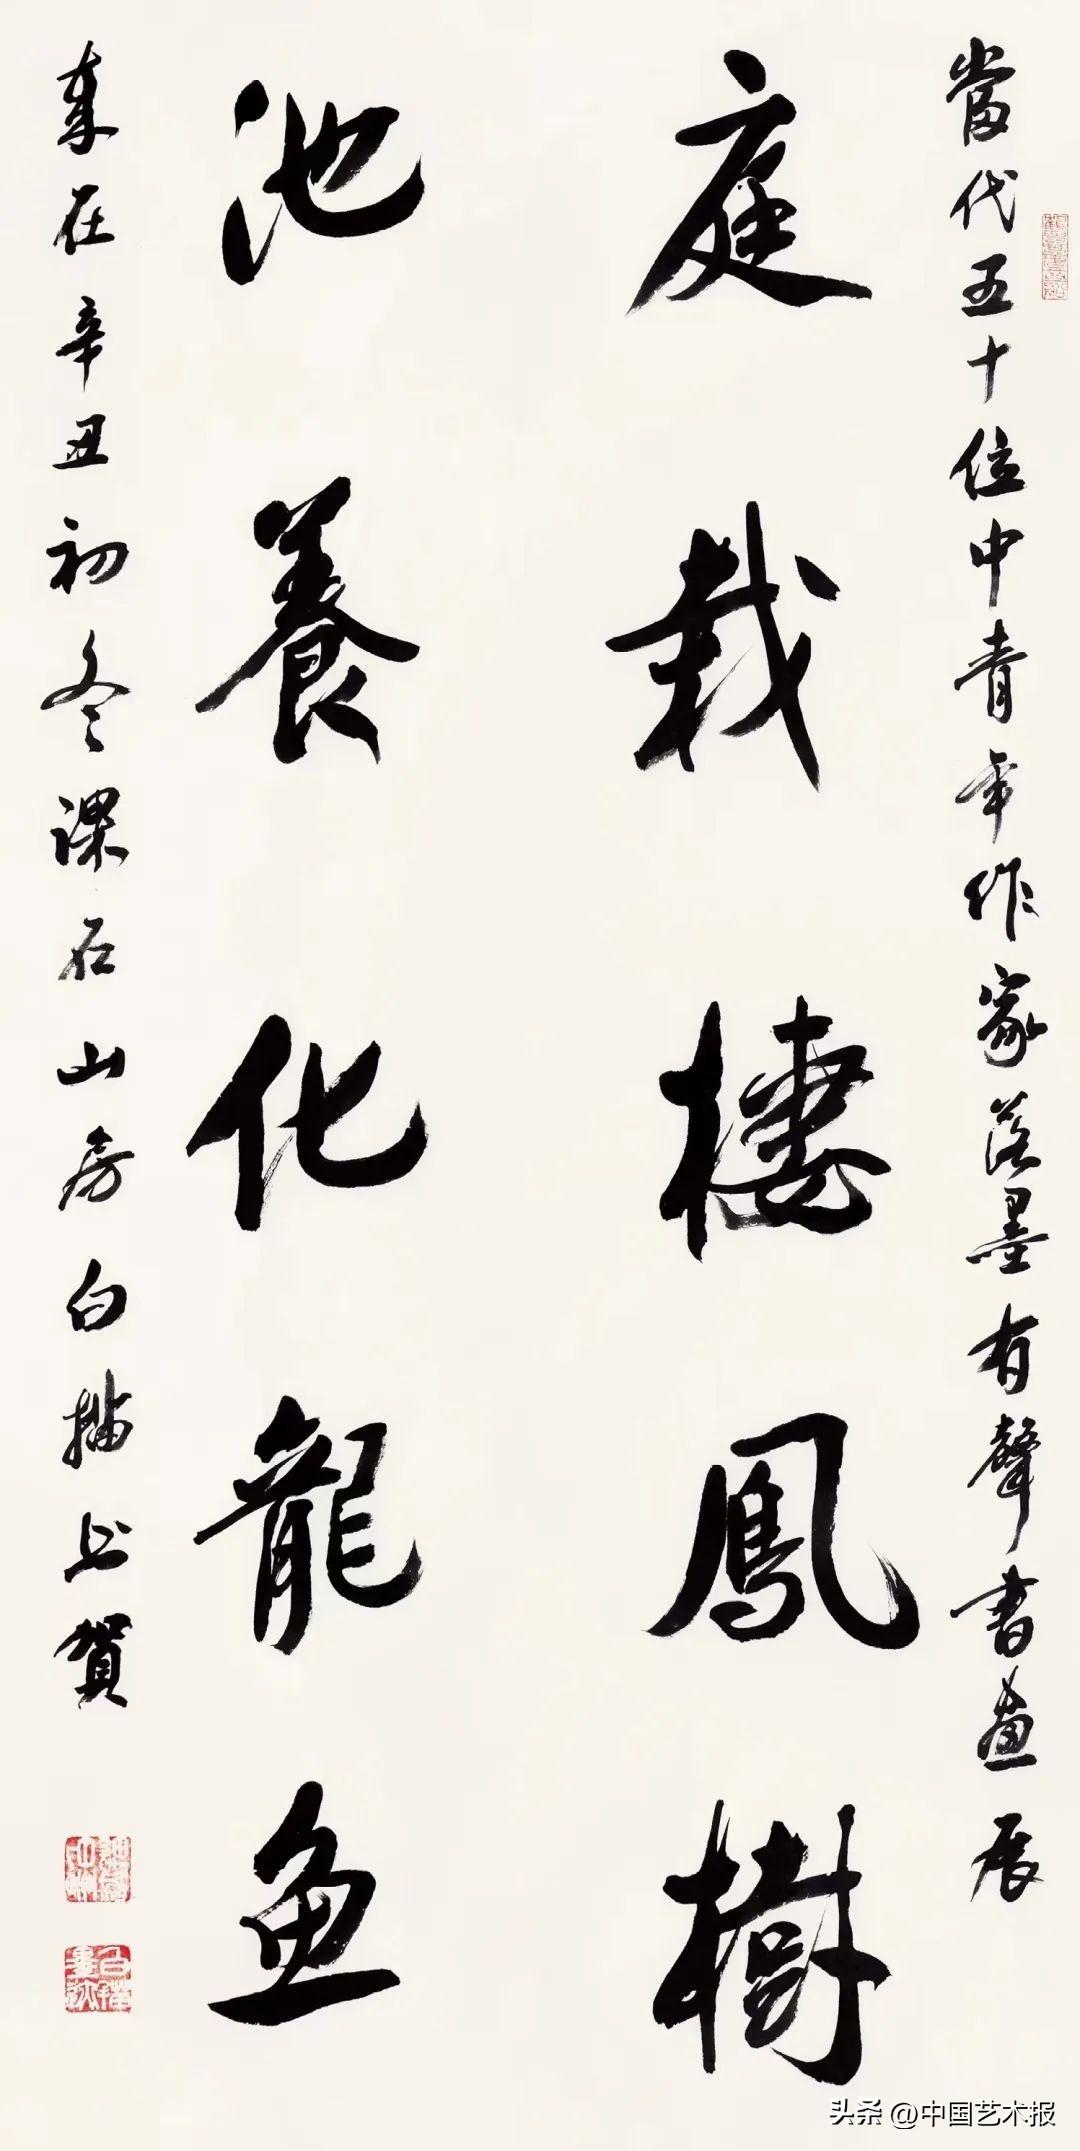 當代五十位中青年作家落墨有聲書畫展
庭栽棲鳳樹
池養化龍魚
歲在辛丑初冬課石山房白描上賀
头条 @中国艺术报